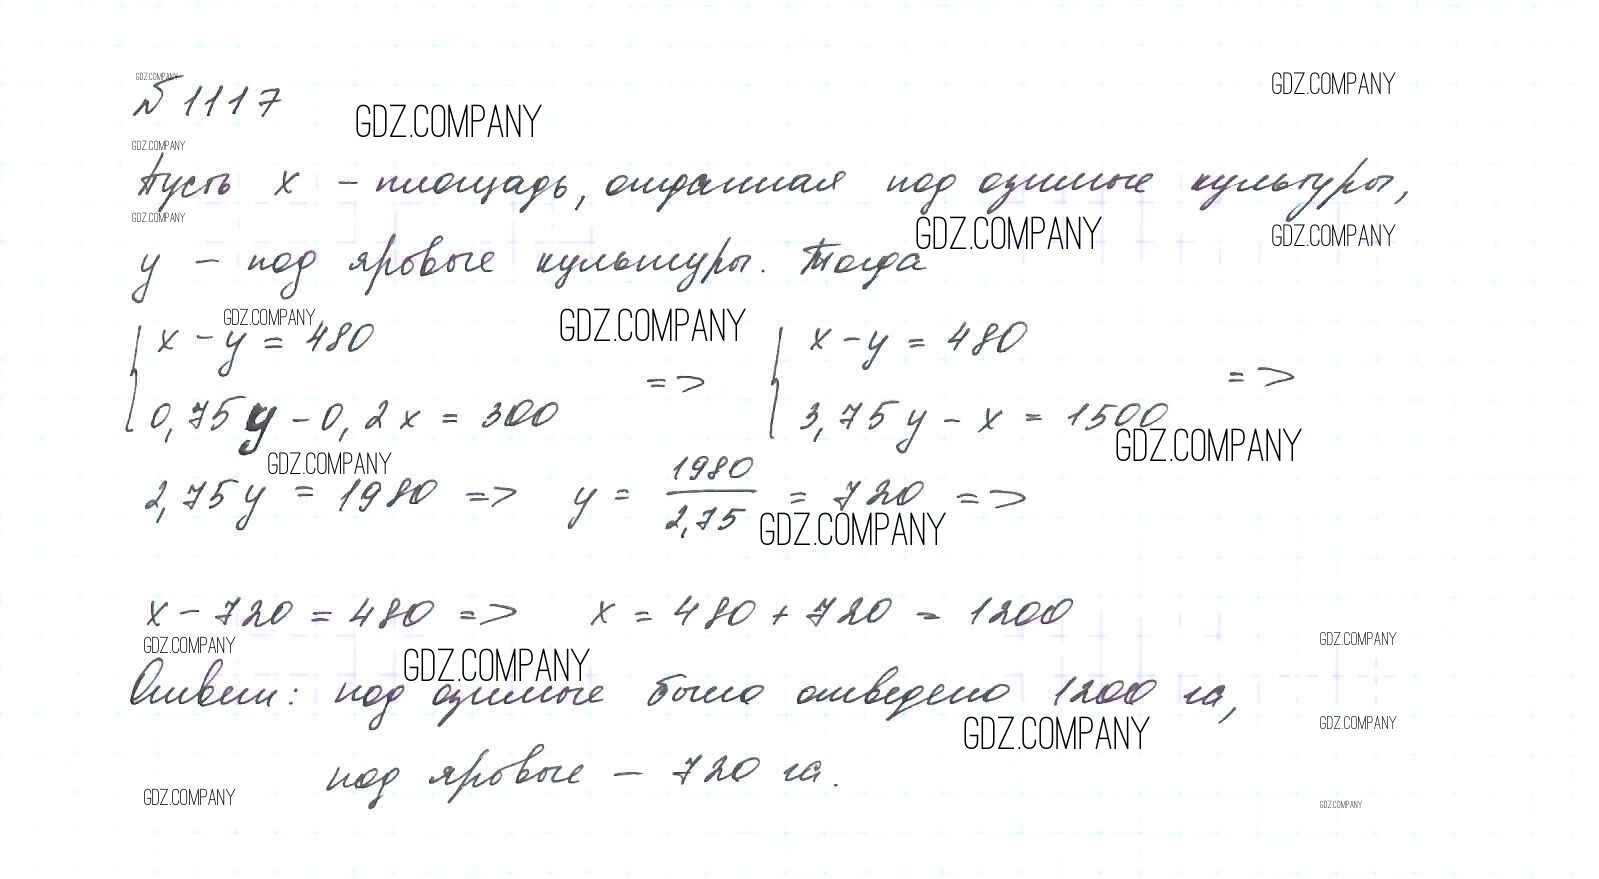 GDZ.COMPANY
№ 1117
GDZ.COMPANY
GDZ.COMPANY
GDZ.COMPANY
Пусть x – площадь, отданная под озимые культуры,
GDZ.COMPANY
GDZ.COMPANY
GDZ.COMPANY
y – под яровые культуры. Тогда
GDZ.COMPANY
GDZ.COMPANY
x - y = 480 => x - y = 480 =>
0,75y - 0,2x = 300 3,75y - x = 1500
GDZ.COMPANY
GDZ.COMPANY
2,75y = 1980 => y = 1980/2,75 = 720 =>
GDZ.COMPANY
x - 720 = 480 => x = 480 + 720 = 1200
GDZ.COMPANY
GDZ.COMPANY
GDZ.COMPANY
Ответ: под озимые было отведено 1200 га,
GDZ.COMPANY
GDZ.COMPANY
под яровые – 720 га.
GDZ.COMPANY
GDZ.COMPANY